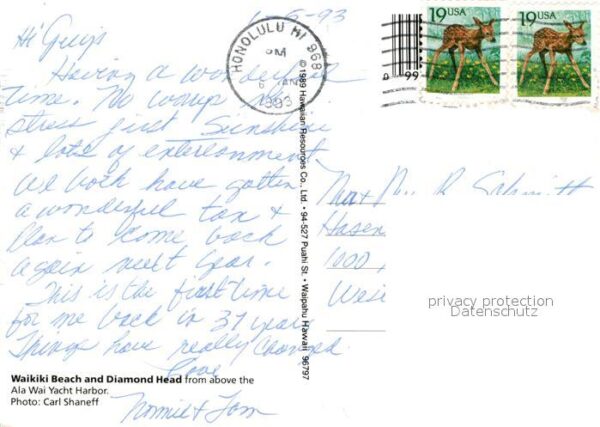 1-6-93
Hi Guys
Having a wonderful
time. No worry no
stress just Sunshine
& lots of entertainment
We both have gotten
a wonderful tan &
Plan to come back
again next year.
This is the first time
for me back in 37 years
Things have really changed
Love
Tom
HONOLULU HI 968
PM
6 JAN
1993
19USA
19USA
99
© 1989 Hawaiian Resources Co., Ltd. • 94-527 Puahi St. • Waipahu Hawaii 96797
Mr & Mrs R Schmitt
Hasen
1000
privacy protection
Datenschutz
Waikiki Beach and Diamond Head from above the
Ala Wai Yacht Harbor.
Photo: Carl Shaneff